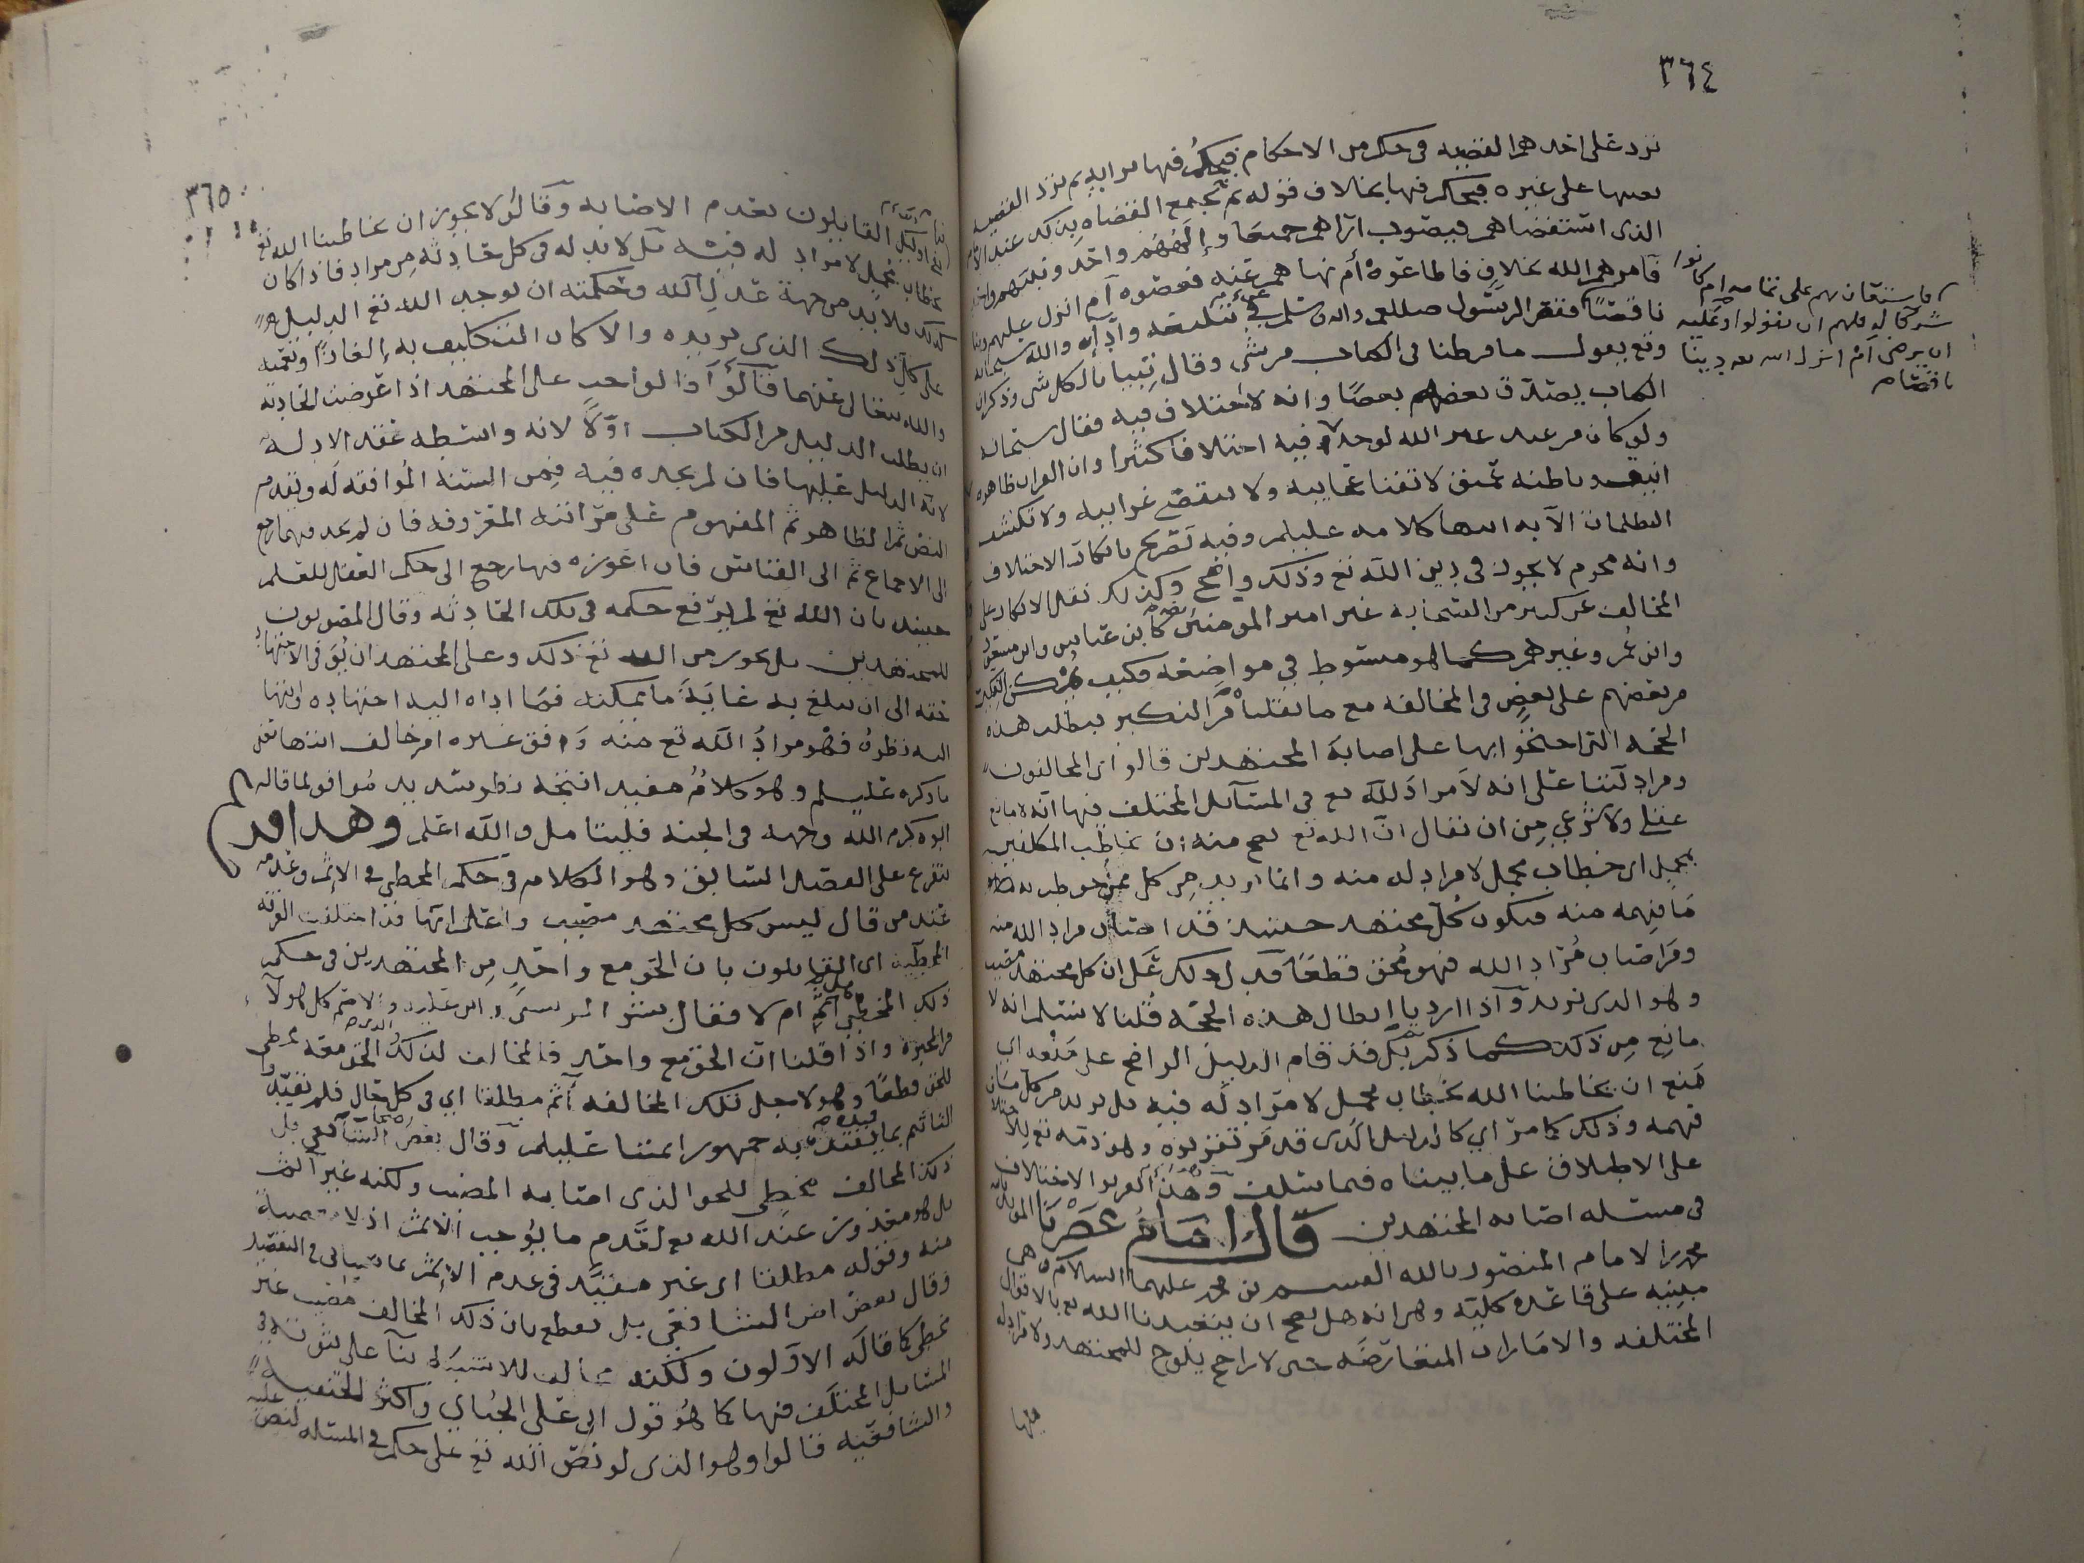 ٣٦٤
ترد على احدهم القضيه في حكم من الاحكام فيحكم فيها برايه ثم ترد القضيه
بعينها على غيره فيحكم فيها بخلاف قوله ثم تجتمع القضاه بذلك عند الامام
الذي استقضاهم فيصوب اراهم جميعا وإلههم واحد ونبيهم واحد
فامرهم الله بخلاف فاطاعوه أم نهاهم عنه فعصوه أم انزل عليهم دينا
ناقصًا فقصر الرسول صللعم عن تبليغه وأدآه والله سبحانه
وتع يقول ما فرطنا في الكتاب من شى وقال تبيانا لكل شى وذكر ان
الكتاب يصدق بعضهم بعضًا وانه لا اختلاف فيه فقال سبحانه
ولو كان من عند غير الله لوجدوا فيه اختلافا كثيرا وان القران ظاهره
انيق وباطنه عميق لا تفنا عجايبه ولا تنقضي غرايبه ولا تكشف
الظلمات الا به انتها كلامه عليلم وفيه تصريح بانكار الاختلاف
وانه محرم لا يجوز في دين الله تع وذلك واضح وكذلك نقل الانكار على
المخالف عن كثير من الصحابه غير امير المومنين كابن عباس وابن مسعود
وابن عمر وغيرهم كما هو مبسوط في مواضعه فكيف
من بعضهم على بعض في المخالفه مع ما نقلنا من النكير فبطلت هذه
الحجه التي احتجوا بها على اصابة المجتهدين قالوا اي المخالفون
ومرادلتنا على انه لا مراد لله تع في المسآئل المختلف فيها انه لا مانع
عقلي ولا شرعي من ان نقال انّ الله تع يصح منه ان يخاطب المكلفين
بمجمل اي خطاب مجمل لا مراد له منه وانما اريد من كل من خوطب به
مَا فهمه منه فيكون كل مجتهد حينئذ قد اصاب مراد الله منه
ومن اصاب مُراد الله فهو مُحق قطعًا فدل ذلك على ان كل مجتهد مصيب
وهو الذي نريد وآذا اردنا ابطال هذه الحجه قُلنا لا نسلم انه لا
مانع من ذلك كما ذكر بل قد قام الدليل الواضح على مَنعه اي
مَنع ان يخاطبنا الله بخطاب مجمل لا مراد له فيه بل يريد من كل منا
فهمه وذلك كما مرّ اي كالدليل الذي قد مر تقريره وهو ذمه تع للاختلاف
على الاطلاق على ما بيناه فيما سلف
في مسئله اصابه المجتهدين قال امام عصرنا المويد بالله
محمد بن الامام المنصور بالله القسم بن محمد عليهما السلام وهي
مبنيه على قاعده كليّه وهي انه هل يصح ان يتعبدنا الله تع بالاقوال
المختلفه والامارات المتعارضَه حتى لا راجح يلوح للمجتهد ولا
منها
فاستعان بهم على تمامه ام كانوا
شركا له فلهم ان يقولوا وعليه
ان يرضى أم انزل الله سبحانه دينا
ناقصا
٣٦٥
القايلون بعدم الاصابه وقالوا لا يجوز ان يخاطبنا الله تع
بخطاب مجمل لا مراد له فيه بل لا بد له في كل حادثه من مراد فاذا كان
كذلك فلا بد من جهة عدل الله وحكمته ان يوجد الله تع الدليل
على ذلك الذي يريده والا كان التكليف به إلغازًا وتعميه
والله يتعالى عنهما قالوا آذا لواجب على المجتهد اذا عرضت الحادثه
ان يطلب الدليل من الكتاب اوّلًا لانه واسطه عقد الادله
لانه الدليل عليها فان لم يجده فيه فمن السنة المُوافقه له ويقدم
النص ثم الظاهر ثم المفهوم على مراتبه المعروفه فان لم يجد فيهما رجع
إلى الاجماع ثم الى القياس فان اعوزه فيها رجع الى حكم العقل للعلم
حينئذ بان الله تع لم يرفع حكمه في تلك الحادثه وقال المصوبون
للمجتهدين بل يجوز من الله تع ذلك وعلى المجتهد ان يُوَفي الاجتهاد
حقه الى ان يبلغ به غاية ما يمكنه فمَا اداه اليه اجتهاده وانتها
اليه نظرهُ فهو مرادُ الله تع منه وَافق غيره ام خالف انتها تع
ما ذكره عليلم وهو كلامُ مفيد انتجه نظر سديد مُوافق لما قاله
ابوه كرم الله وجهه في الجنه فليتامل والله اعلم وهذا فرع
يتفرع على الفصل السابق وهو الكلام في حكم المخطي في الاثم وعدمه
عند من قال ليس كل مجتهد مصيب واعلم انها قد اختلفت الفرقه
المخطّيه اي القايلون بان الحق مع واحد من المجتهدين في حكم
ذلك المخطي هل هو آثم ام لا فقال بشر المريسي وابن عليه والاصم كل هولآ
من المجبره واذا قلنا انّ الحق مع واحد فالمخالف لذلك الذي الحق معه مخطي
للحق قطعًا وهو لاجل تلك المخالفه أثم مطلقا اي في كل حال فلم نقيد
التاثيم بما يقيده به جمهور ائمتنا عليلم وقال بعض اصحاب الشافعي بل
ذلك المخالف مخطي للحق الذي اصابه المصيب ولكنه غير آثم
بل هو معذور عند الله تع لعدم ما يُوجب الاثم اذ لا معصية
منه وقوله مطلقا اي غير مقيّد في عدم الاثم بما سياتي في التفصيل
وقال بعض اصحاب الشافعي بل يقطع بان ذلك المخالف مصيب غير
مخطي كما قاله الاولون ولكنه مخالف للاشبَه بنآ على ثبوته في
المسايل المختلف فيها كما هُو قول ابي علي الجُبآي واكثر الحنفيه
والشافعيّه قالوا وهو الذي لو نصّ الله تع على حكم في المسئله لنص عليه